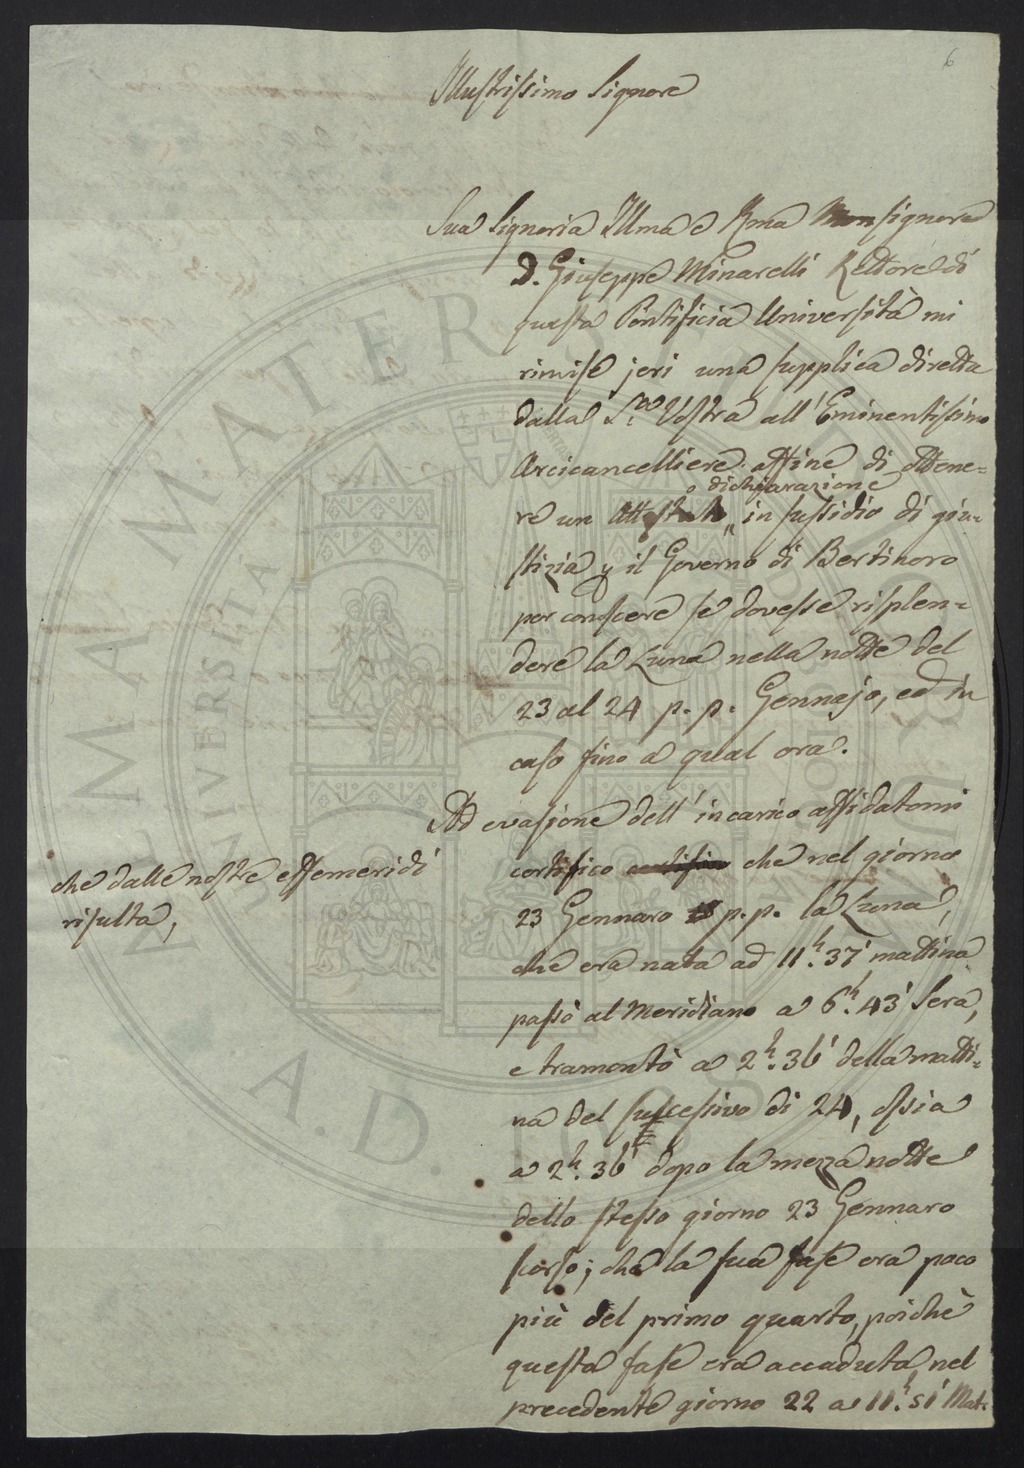 6
Illustrissimo Signore
Sua Signoria Illma e Rma Monsignore
D. Giuseppe Minarelli Rettore di
questa Pontificia Università mi
rimise jeri una supplica diretta
dalla S.ria Vostra all'Eminentissimo
Arcicancelliere affine di ottene=
o dichiarazione
re un Attestato in sussidio di giu=
stizia p il Governo di Bertinoro
per conoscere se dovesse risplen=
dere la Luna nella notte del
23 al 24 p. p. Gennajo, ed in
caso fino a qual ora.
Ad evasione dell'incarico affidatomi
certifico certifico che nel giorno
che dalle nostre effemeridi
risulta,
23 Gennaro p.p. la Luna,
che era nata ad 11h. 37' mattina
passò al Meridiano a 6h. 43' Sera,
e tramontò a 2h. 36' della matti=
na del successivo dì 24, ossia
a 2h. 36' dopo la mezza notte
dello stesso giorno 23 Gennaro
scorso; che la sua fase era poco
più del primo quarto, poichè
questa fase era accaduta nel
precedente giorno 22 a 11h. 51' Mat.
ALMA MATER STUDIORUM
UNIVERSITÀ DI BOLOGNA
A.D. 1088